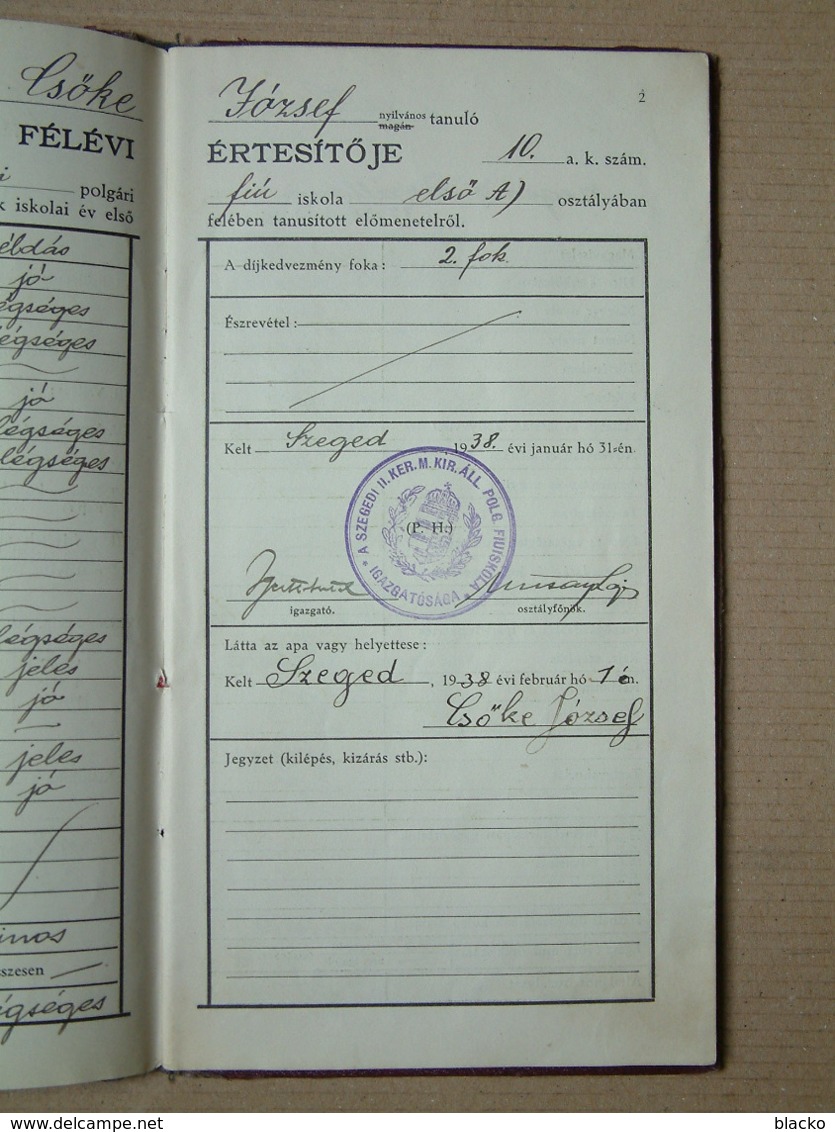 Csőke
FÉLÉVI
polgári
k iskolai év első
éldás
jó
égséges
égséges
jó
légséges
légséges
légséges
jeles
jó
jeles
jó
inos
szesen
égséges
2
József nyilvános magán tanuló
ÉRTESÍTŐJE 10. a. k. szám.
fiú iskola első A) osztályában
felében tanusított előmenetelről.
A díjkedvezmény foka: 2. fok.
Észrevétel:
Kelt Szeged, 1938. évi január hó 31-én.
A SZEGEDI II. KER. M. KIR. ÁLL. POLG. FIUISKOLA
IGAZGATÓSÁGA
(P. H.)
igazgató. osztályfőnök.
Látta az apa vagy helyettese:
Kelt Szeged, 1938 évi február hó 1 én.
Csőke József
Jegyzet (kilépés, kizárás stb.):
delcampe.net
blacko